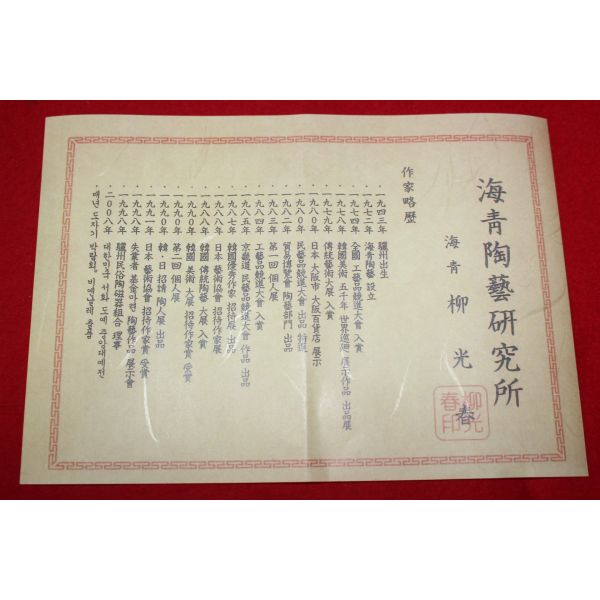 海青陶藝研究所
海青 柳光春
柳光春印
作家略歷
・一九四三年 驪州出生
・一九七二年 海青陶藝 設立
・一九七四年 全國 工藝品競進大會 入賞
・一九七八年 韓國美術 五千年 世界巡廻 展示作品 出品展
・一九八〇年 傳統藝術大展 入賞
・一九八〇年 日本 大阪市 大阪百貨店 展示
・一九八〇年 民藝品競進大會 出品 特選
・一九八二年 貿易博覽會 陶藝部門 出品
・一九八三年 第一回 個人展
・一九八四年 工藝品競進大會 入賞
・一九八五年 京畿道 民藝品競進大會 作品 出品
・一九八七年 韓國優秀作家 招待展 出品
・一九八八年 日本 藝術協會 招待作家展
・一九八八年 韓國 傳統陶藝 大展 入賞
・一九九〇年 韓國 美術 大展 招待作家賞 受賞
・一九九〇年 第二回 個人展
・一九九〇年 韓・日 招請 陶人展
・一九九一年 日本 藝術協會 招待作家賞 受賞
・一九九八年 失業者 基金마련 陶藝作品 展示會
・一九九八年 驪州民俗陶磁器組合 理事
・二〇〇八年 대한민국 서화 도예 중앙대예전
・매년 도자기 박람회, 비엔날레 출품